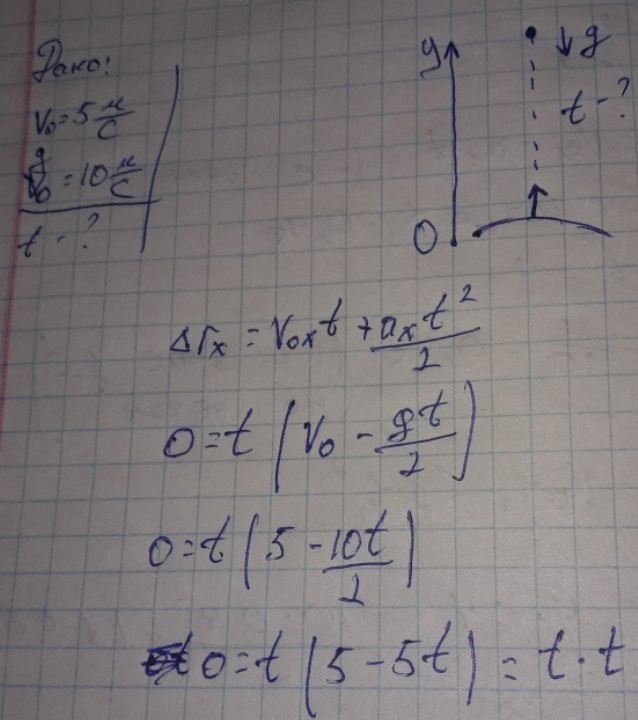 Дано:
V₀ = 5 м/с
g = 10 м/с
t - ?
y
↓g
t - ?
0
Δr_x = V₀ₓt + aₓt²/2
0 = t(V₀ - gt/2)
0 = t(5 - 10t/2)
0 = t(5 - 5t) = t · t